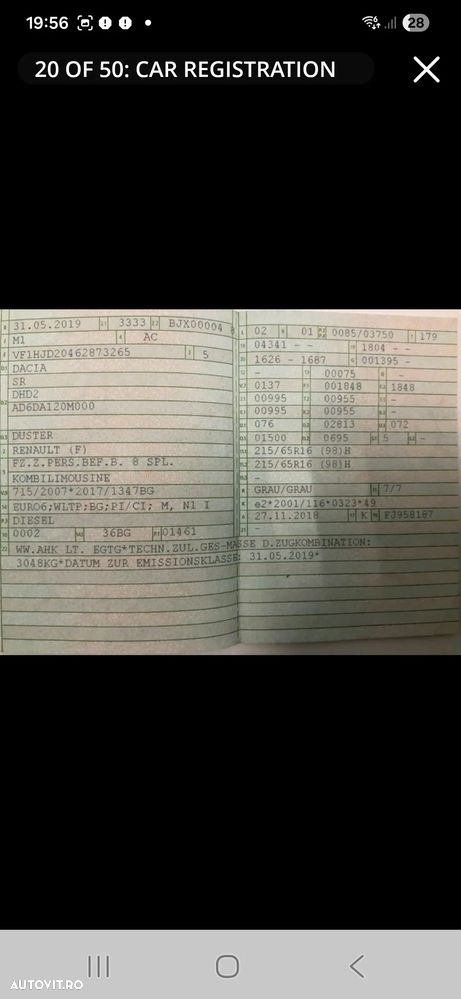 19:56
28
20 OF 50: CAR REGISTRATION
31.05.2019 3333 BJX00004 8
M1 AC
VF1HJD20462873265 5
DACIA
SR
DHD2
AD6DA120M000
DUSTER
RENAULT (F)
FZ.Z.PERS.BEF.B. 8 SPL.
KOMBILIMOUSINE
715/2007*2017/1347BG
EURO6;WLTP;BG;PI/CI; M, N1 I
DIESEL
0002 36BG 01461
02 01 0085/03750 179
04341 - - 1804 - -
1626 - 1687 001395 -
- 00075 -
0137 001848 1848
00995 00955 -
00995 00955 -
076 02813 072
01500 0695 5 -
215/65R16 (98)H
215/65R16 (98)H
-
GRAU/GRAU 7/7
e2*2001/116*0323*49
27.11.2018 K EJ958187
-
WW.AHK LT. EGTG*TECHN.ZUL.GES-MASSE D.ZUGKOMBINATION:
3048KG*DATUM ZUR EMISSIONSKLASSE: 31.05.2019*
AUTOVIT.RO